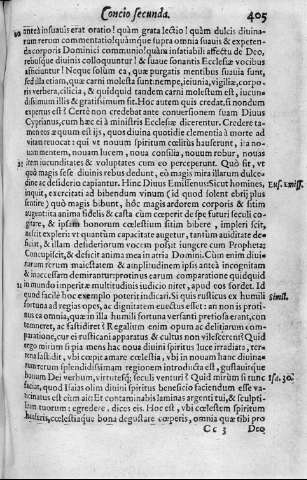 Concio secunda. 405
antè insuauis erat oratio! quàm grata lectio! quàm dulcis diuina-
rum rerum commentatio! quámque supra omnia suauis & expeten-
da corporis Dominici communio! quàm insatiabili affectu de Deo,
rebusque diuinis colloquuntur! & suaue sonantis Ecclesiæ vocibus
afficiuntur! Neque solùm ea, quæ purgatis mentibus suauia sunt,
sed illa etiam, quæ carni molesta sunt: nempe, ieiunia, vigiliæ, corpo-
ris verbera, cilicia, & quidquid tandem carni molestum est, iucun-
dissimum illis & gratissimum fit. Hoc autem quis credat, si nondum
expertus est? Certè non credebat ante conuersionem suam Diuus
Cyprianus, cùm hæc ei à ministris Ecclesiæ dicerentur. Credere ta-
men eos æquum est ijs, quos diuina quotidie clementia à morte ad
vitam reuocat: qui vt nouum spiritum cœlitùs hauserunt, ita no-
uam mentem, nouum lucem, noua consilia, nouum robur, nouas
iucunditates & voluptates cum eo perceperunt. Quò fit, vt
quò magis sese diuinis rebus dedunt, eò magis mira illarum dulce-
dine ac desiderio capiantur. Hinc Diuus Emissenus: Sicut homines, Eus. emiss.
inquit, exercitati ad bibendum vinum (id quod solent ebrij plus
sentire) quò magis bibunt, hôc magis ardorem corporis & sitim
augent: ita anima fidelis & casta cùm cœperit de spe futuri seculi co-
gitare, & ipsam honorum cœlestium sitim bibere, impleri scit,
desistere expleri: capacitatem augetur, tantùm auiditate defi-
cit, & illam desideriorum vocem possit iungere cum Propheta:
Concupiscit, & deficit anima mea in atria Domini. Cùm enim diui-
narum rerum maiestatem & amplitudinem ipsis anteà incognitam
& inaccessam demirantur: protinus earum comparatione quidquid
in mundo imperitæ multitudinis iudicio nitet, apud eos sordet. Id
quod facilè hoc exemplo poterit indicari. Si quis rusticus ex humili Simil.
fortuna ad regias opes, ac dignitatem euectus esset: an non is proti-
nus ea omnia, quæ in illa humili fortuna versanti pretiosa erant, con-
temneret, ac fastidiret? Regalium enim opum ac delitiarum com-
paratione, cur ei rusticani apparatus & cultus non vilescerent? Quid
ergo mirum si pia mens hac noua diuini spiritus luce irradiato, ter-
rena fastidit, vbi cœpit amare cœlestia, vbi in nouam hanc diuina-
rum rerum splendidissimam regionem introducta est, gustauitque
bonum Dei verbum, virtutesq; seculi venturi? Quid mirùm si tunc Isa. 30.
faciat, quod Isaias olim diuini spiritus beneficio faciendum esse va-
ticinatus est cùm ait: Et contaminabis laminas argenti tui, & sculpti-
lium tuorum: egredere, dices eis. Hoc est, vbi cœlestem spiritum
hauseris, cœlestiaque bona degustare cœperis, omnia quæ tibi pro
Cc 3 Deo